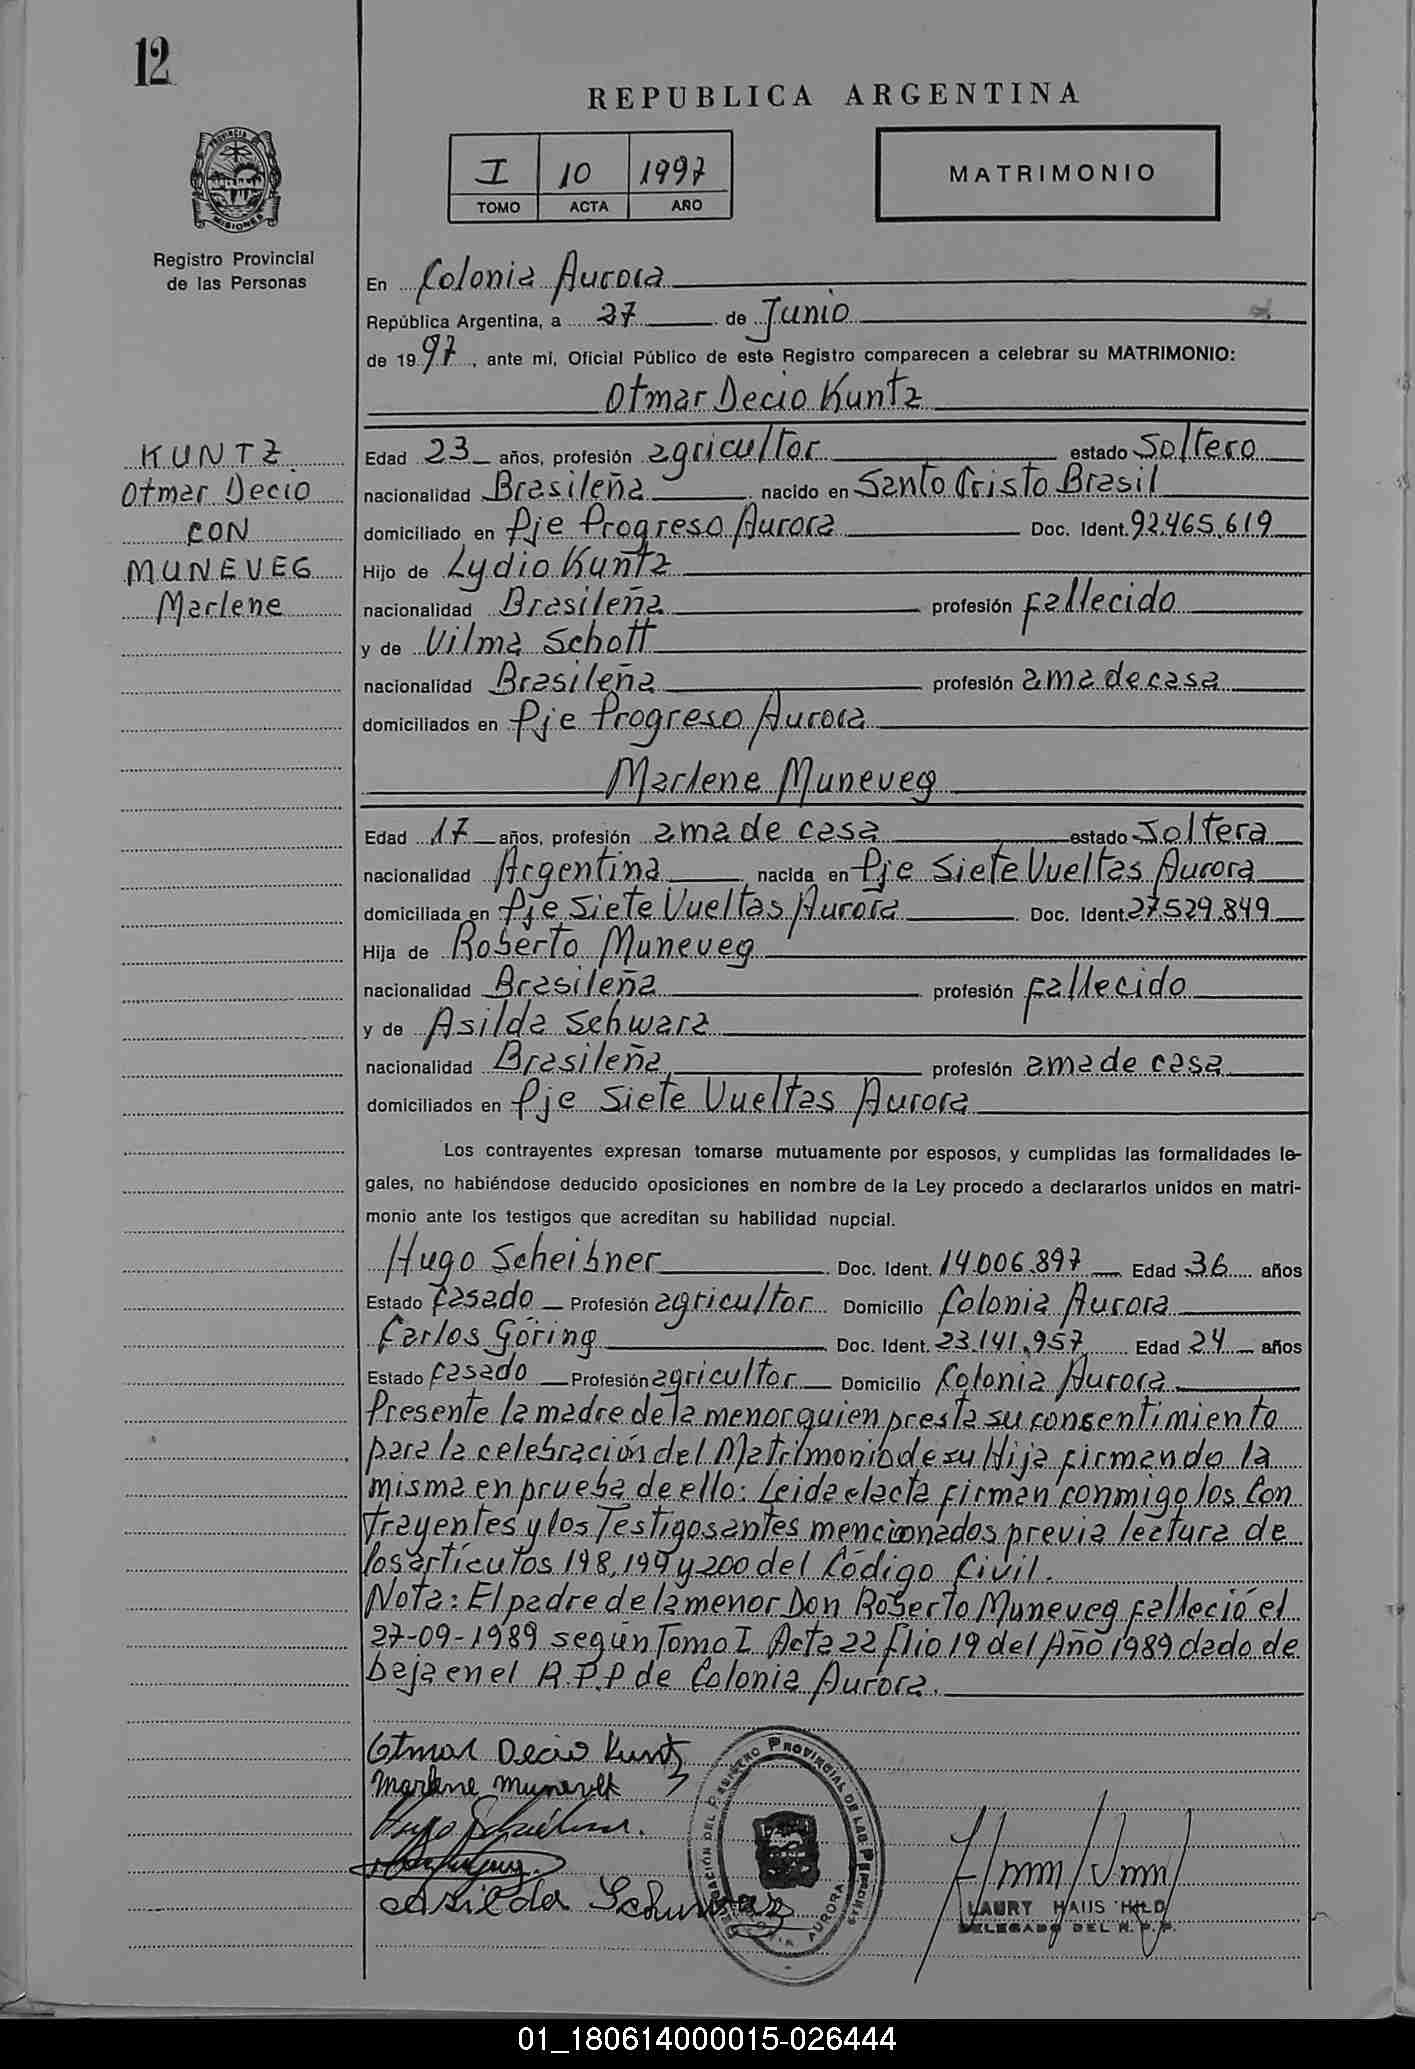 12
REPUBLICA ARGENTINA
I 10 1997
TOMO ACTA AÑO
MATRIMONIO
PROVINCIA DE
MISIONES
Registro Provincial
de las Personas
En Colonia Aurora
República Argentina, a 27 de Junio
de 1997, ante mí, Oficial Público de este Registro comparecen a celebrar su MATRIMONIO:
Otmar Decio Kuntz
KUNTZ
Otmar Decio
CON
MUNEVEG
Marlene
Edad 23 años, profesión agricultor estado Soltero
nacionalidad Brasileña nacido en Santo Cristo Brasil
domiciliado en Pje Progreso Aurora Doc. Ident. 92.465.619
Hijo de Lydio Kuntz
nacionalidad Brasileña profesión fallecido
y de Vilma Schott
nacionalidad Brasileña profesión ama de casa
domiciliados en Pje Progreso Aurora
Marlene Muneveg
Edad 17 años, profesión ama de casa estado Soltera
nacionalidad Argentina nacida en Pje Siete Vueltas Aurora
domiciliada en Pje Siete Vueltas Aurora Doc. Ident. 27.529.849
Hija de Roberto Muneveg
nacionalidad Brasileña profesión fallecido
y de Asilda Schwarz
nacionalidad Brasileña profesión ama de casa
domiciliados en Pje Siete Vueltas Aurora
Los contrayentes expresan tomarse mutuamente por esposos, y cumplidas las formalidades le-
gales, no habiéndose deducido oposiciones en nombre de la Ley procedo a declararlos unidos en matri-
monio ante los testigos que acreditan su habilidad nupcial.
Hugo Scheibner Doc. Ident. 14.006.897 Edad 36 años
Estado Casado Profesión agricultor Domicilio Colonia Aurora
Carlos Göring Doc. Ident. 23.141.957 Edad 24 años
Estado Casado Profesión agricultor Domicilio Colonia Aurora
Presente la madre de la menor quien presta su consentimiento
para la celebración del Matrimonio de su Hija firmando la
misma en prueba de ello: Leida el acta firman conmigo los Con
trayentes y los Testigos antes mencionados previa lectura de
los artículos 198, 199 y 200 del Código Civil.
Nota: El padre de la menor Don Roberto Muneveg falleció el
27-09-1989 según Tomo I Acta 22 flio 19 del Año 1989 dado de
baja en el R.P.P de Colonia Aurora.
Otmar Decio Kuntz
Marlene Munevek
Hugo Scheibner
Asilda Schwarz
REGISTRO PROVINCIAL DE LAS PERSONAS
AURORA
LAURY HAUS HILD
DELEGADO DEL R. P. P.
01_180614000015-026444